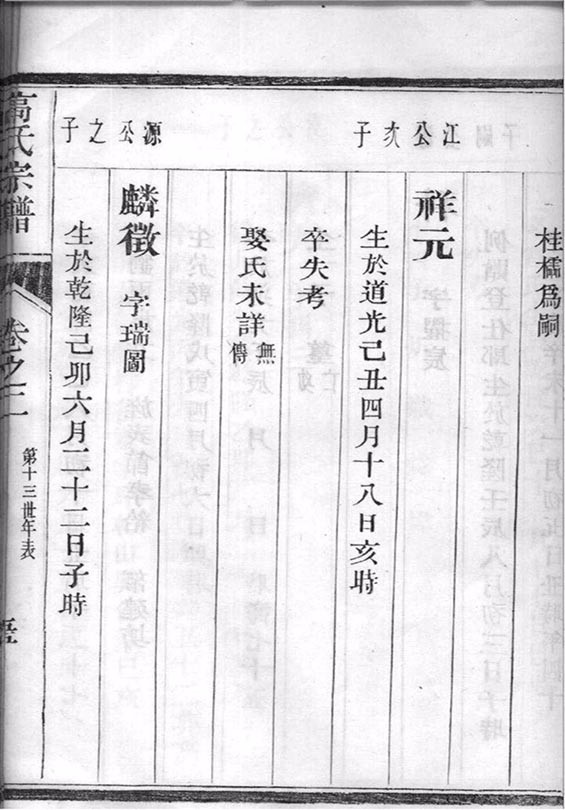 桂檽爲嗣
江公次子
祥元
生於道光己丑四月十八日亥時
卒失考
娶氏未詳 無傳
源公之子
麟徵 字瑞圖
生於乾隆己卯六月二十二日子時
高氏宗譜
卷之二
第十三世年表